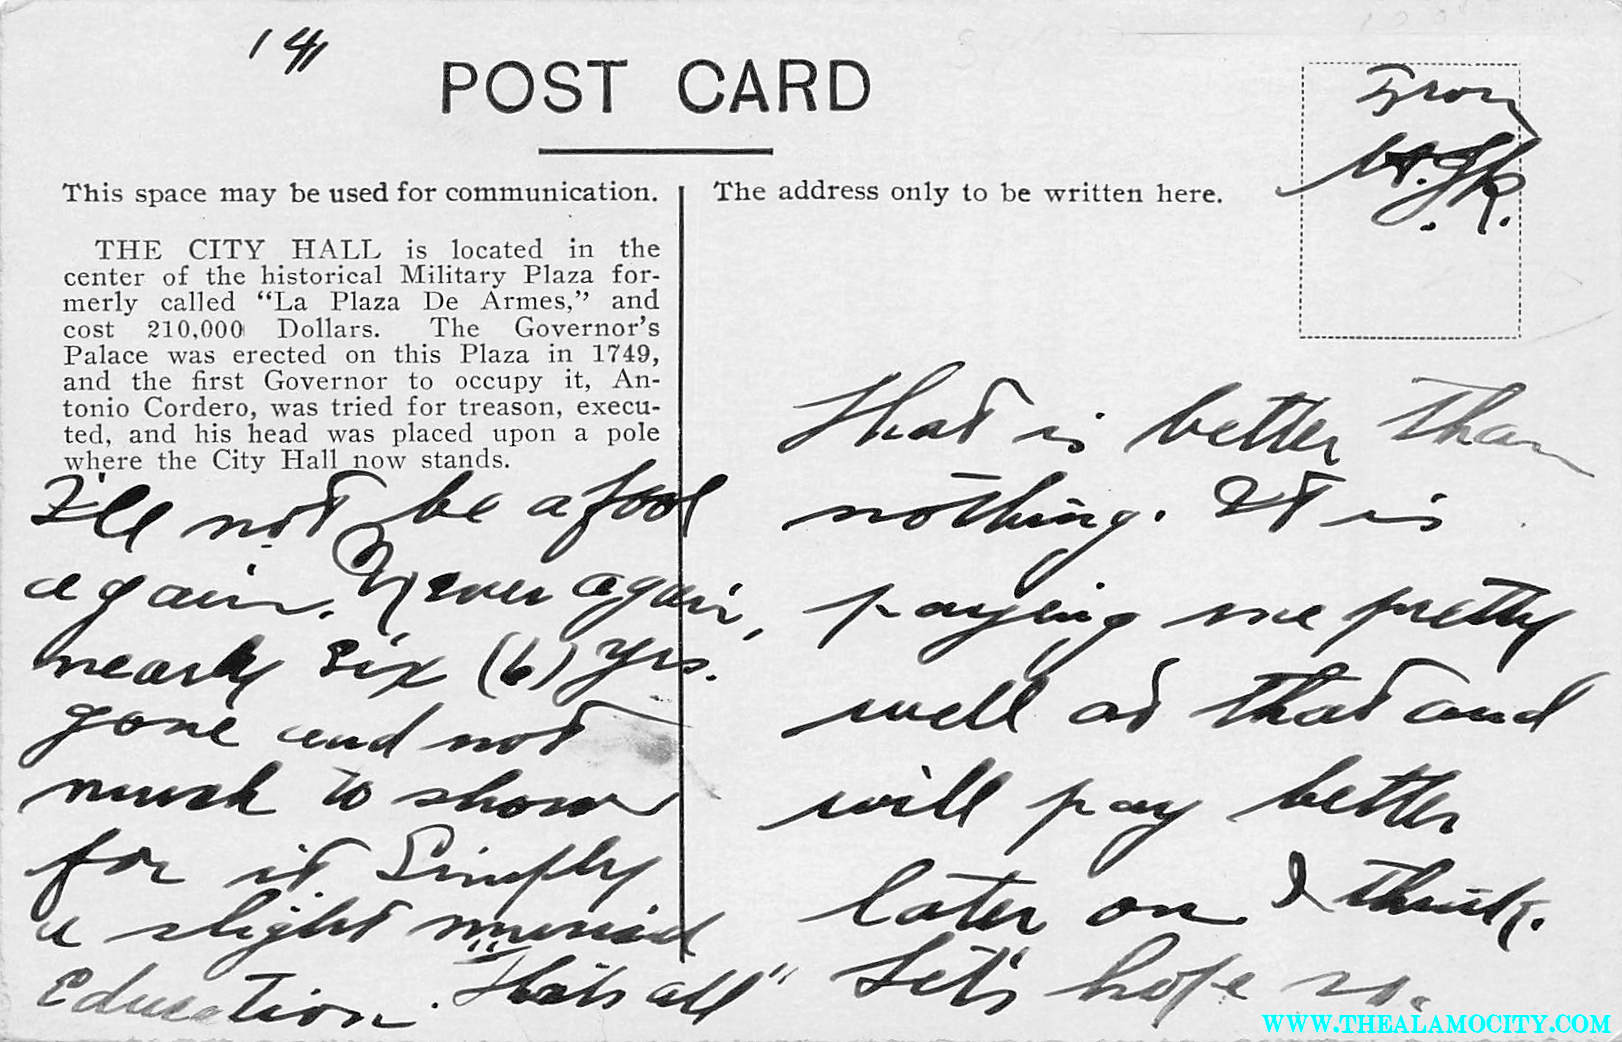 141
POST CARD
From
H.G.R.
This space may be used for communication.
The address only to be written here.
THE CITY HALL is located in the
center of the historical Military Plaza for-
merly called “La Plaza De Armes,” and
cost 210,000 Dollars. The Governor's
Palace was erected on this Plaza in 1749,
and the first Governor to occupy it, An-
tonio Cordero, was tried for treason, execu-
ted, and his head was placed upon a pole
where the City Hall now stands.
I'll not be a fool
again. Never again,
nearly six (6) yrs.
gone and not
much to show
for it Simply
a slight musical
education. "That's all"
That is better than
nothing. It is
paying me pretty
well at that and
will pay better
later on I think.
Let's hope so.
WWW.THEALAMOCITY.COM